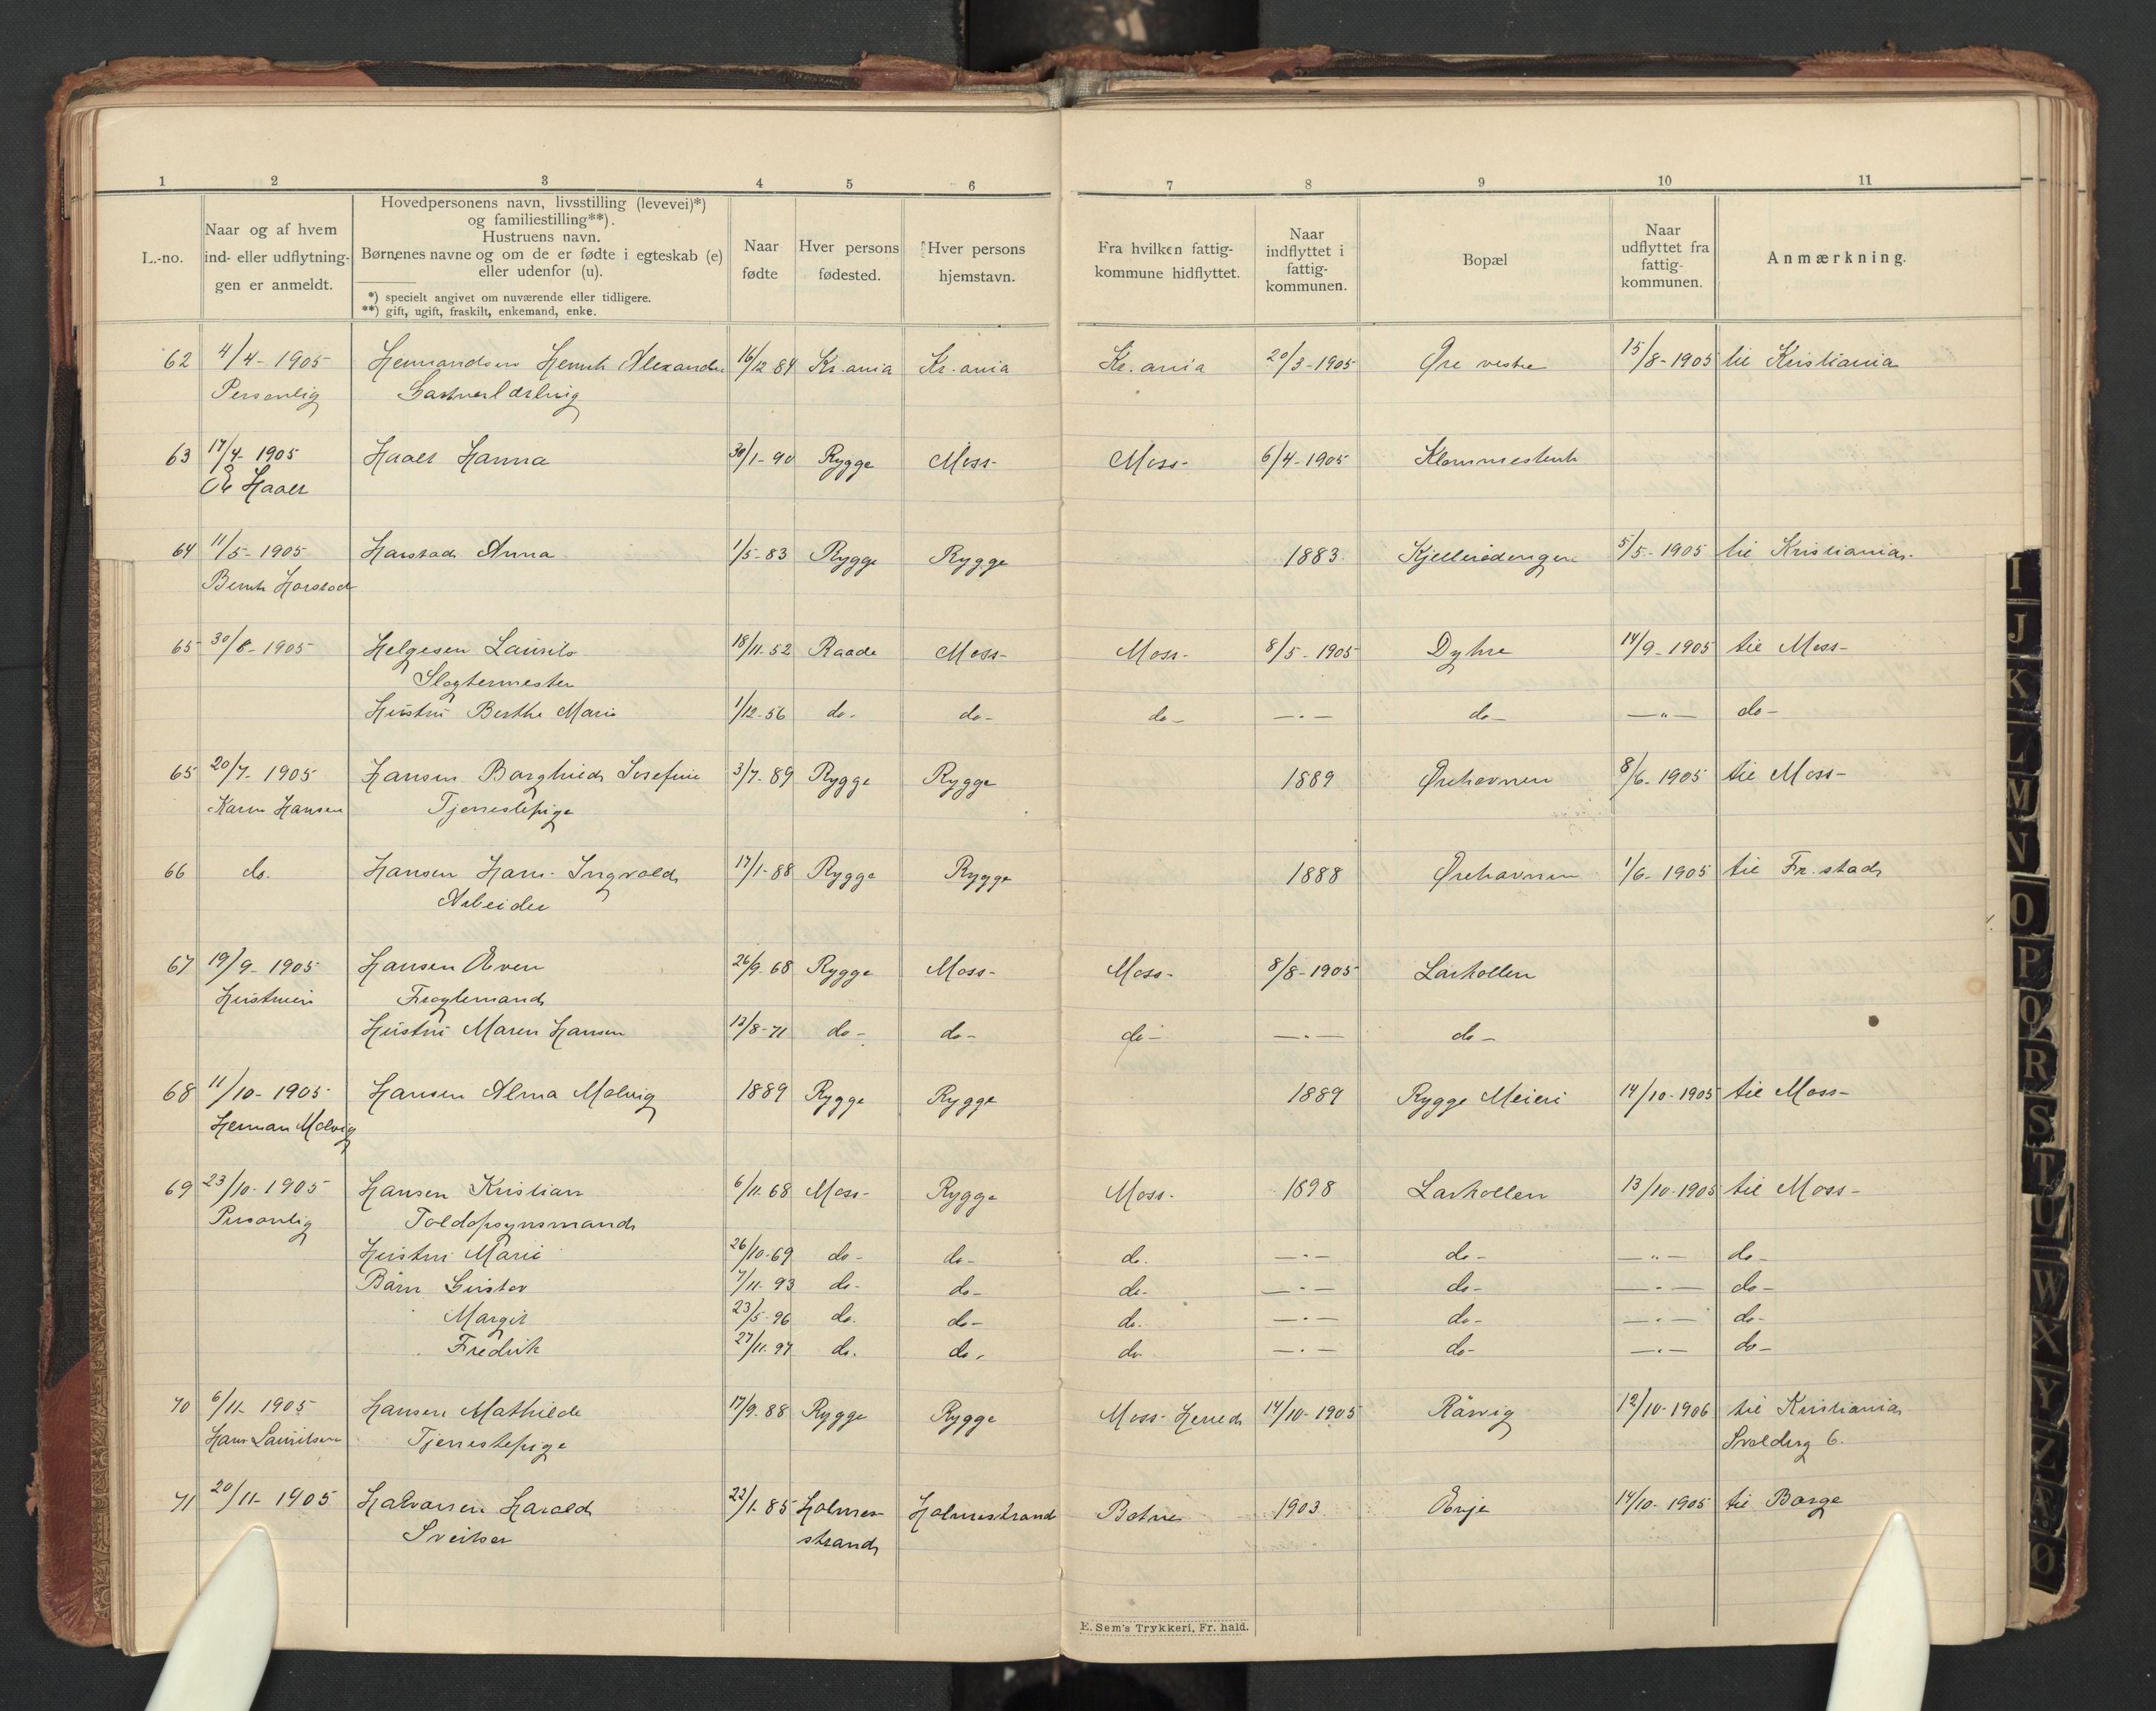 1 2 3 4 5 6 7 8 9 10 11
L.-no.
Naar og af hvem
ind- eller udflytnin-
gen er anmeldt.
Hovedpersonens navn, livsstilling (levevei)*)
og familiestilling**).
Hustruens navn.
Børnenes navne og om de er fødte i egteskab (e)
eller udenfor (u).
*) specielt angivet om nuværende eller tidligere.
**) gift, ugift, fraskilt, enkemand, enke.
Naar
fødte
Hver persons
fødested.
Hver persons
hjemstavn.
Fra hvilken fattig-
kommune hidflyttet.
Naar
indflyttet i
fattig-
kommunen.
Bopæl
Naar
udflyttet fra
fattig-
kommunen.
Anmærkning.
62 4/4- 1905 Hermandsen Henrik Alexander 16/12 84 Kr.ania Kr.ania Kr.ania 20/3-1905 Øre vestre 15/8-1905 til Kristiania
Personlig Gartnerlærling
63 17/4- 1905 Haaes Hanna 30/1-90 Rygge Moss- Moss- 6/4-1905
Haaes
64 11/5- 1905 Harstad Anna 1/5-83 Rygge Rygge 1883. Kjellerødengen 5/5-1905 til Kristiania.
Bernh Harstad
65 30/8-1905 Helgesen Laurits 18/11-52 Raade Moss- Moss- 8/5-1905 Dyhre 14/9-1905 til Moss-
Slagtermester
Hustru Berthe Marie 1/12-56 do- do- do- —.— do- —"— do-
65 20/7- 1905 Hansen Borghild Josefine 3/7-89 Rygge Rygge 1889 Ørehavnen 8/6-1905 til Moss-
Karen Hansen Tjenestepige
66 do. Hansen Hans Ingvald 17/1-88 Rygge Rygge 1888 Ørehavnen 1/6-1905 til Fr.stad
Arbeider
67 19/9- 1905 Hansen Even 26/9-68 Rygge Moss- Moss- 8/8-1905 Larkollen
Hustruen Fragtemand
Hustru Maren Hansen 12/8-71 do- do- do- —.— do-
68 11/10- 1905 Hansen Alma Molvig 1889 Rygge Rygge 1889 Rygge Meieri 14/10-1905 til Moss-
Herman Molvig
69 23/10-1905 Hansen Kristian 6/11 68 Moss- Rygge Moss- 1898 Larkollen 13/10-1905 til Moss-
Personlig Toldopsynsmand
Hustru Marie 26/10-69 do- do- do. —.— do- —"— do-
Børn Gustav 7/11-93 do- do- do- —.— do- —.— do-
Margit 23/5-96 do. do- do. —.— do- —.— do-
Fredrik 27/11-97 do. do. do. —.— do- —.— do-
70 6/11- 1905 Hansen Mathilde 17/9-88 Rygge Rygge Moss-Herred 14/10-1905 Rårvig 12/10-1906 til Kristiania
Hans Lauritsen Tjenestepige Svoldrg 6.
71 20/11- 1905 Halvorsen Harald 22/1-85 Holmes- Holmestrand Botne 1903 Evje 14/10-1905 til Borge
Sveitser strand
E. Sem's Trykkeri, Fr. hald.
I
J
K
L
M
N
O
P
Q
R
S
T
U
W
X
Y
Z
Ø